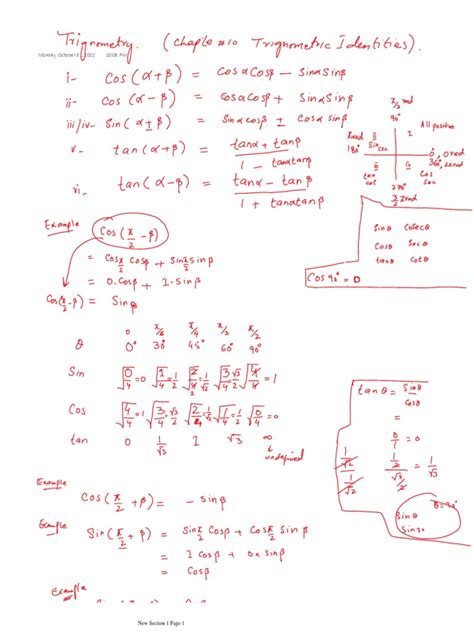 Trignometry. (Chapte #10 Trignometric Identities).
Monday, October 2022 10:08 PM
i- Cos (α+β) = CosαCosβ - SinαSinβ
ii- Cos (α-β) = CosαCosβ + SinαSinβ
iii/iv- Sin (α±β) = Sinαcosβ ± Cosα sinβ
v- tan(α+β) = tanα + tanβ / 1 - tanαtanβ
vi- tan(α-β) = tanα - tanβ / 1 + tanαtanβ
π/2 rad
90°
I All positive
πrad
180°
S
Sin cec
0, 0rad
360°, 2πrad
T
tan
cot
C
Cos
Sec
270°
3π/2 rad
Sinθ Cosecθ
Cosθ Secθ
tanθ Cotθ
Cos90° = 0
Example Cos(π/2 - β)
= Cosπ/2 Cosβ + Sinπ/2 Sinβ
= 0.Cosβ + 1.Sinβ
Cos(π/2-β) = Sinβ
0 π/6 π/4 π/3 π/2
θ 0° 30° 45° 60° 90°
Sin √0/4=0 √1/4=1/2 √2/4=1/√2 √3/4=√3/2 √4/4=1
Cos √4/4=1 √3/4=√3/2 √2/4=1/√2 √1/4=1/2 √0/4=0
tan 0 1/√3 1 √3 ∞
undefined
tanθ = Sinθ/Cosθ
=
0/1 = 0
1/2 / √3/2 = 1/√3
1/√2 / 1/√2
θ=30°
Sinθ
Sin30
Example
Cos(π/2 + β) = - Sinβ
Example Sin(π/2 + β) = Sinπ/2 Cosβ + Cosπ/2 Sinβ
= 1 Cosβ + 0x Sinβ
= Cosβ
Example
New Section 1 Page 1